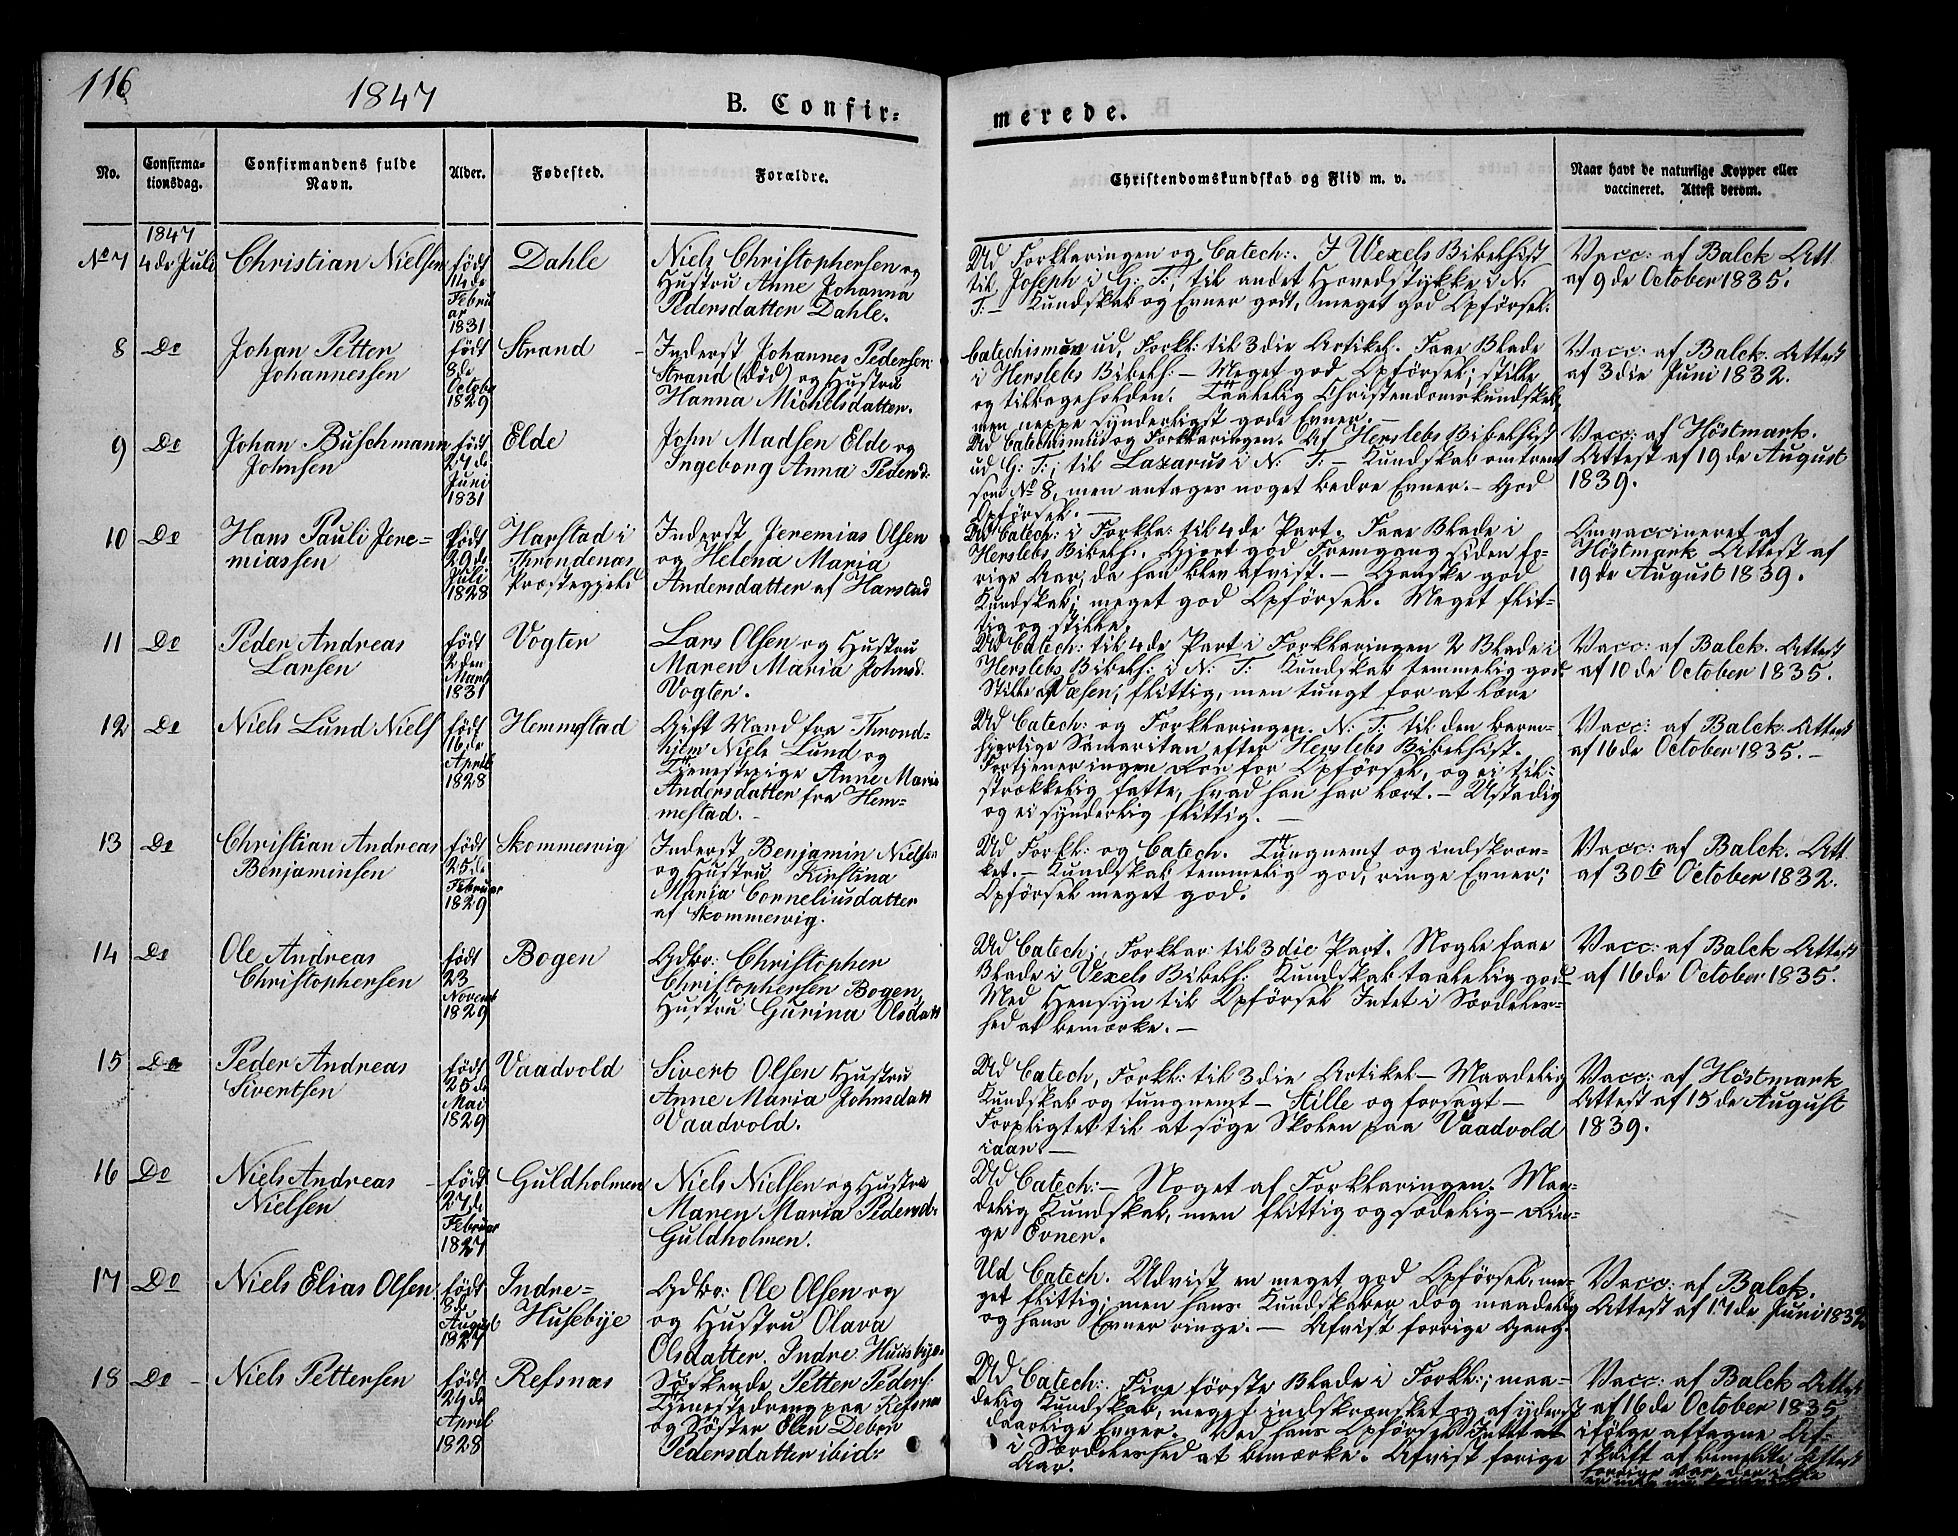 116
1847
B. Confir-
merede.
No.
Confirma-
tionsdag.
Confirmandens fulde
Navn.
Alder.
Fødested.
Forældre.
Christendomskundskab og Flid m. v.
Naar havt de naturlige Kopper eller
vaccineret. Attest derom.
1847
No 7
4de Juli
Christian Nielsen
født
11te
Febru
ar
1831
Dahle
Niels Christophersen og
Hustru Anne Johanna
Pedersdatter Dahle.
Ud Forklaringen og Catech:. I Wexels Bibelhist
til Joseph i G: T:, til andet Hovedstykke i N:
T: – Kundskab og Evner godt, meget god Opførsel.
Vacc: af Balck Att
af 9de October 1835.
8
Do
Johan Petter
Johannessen
født
8de
Octobr
1829
Strand
Inderst Johannes Pedersen
Strand (død) og Hustru
Hanna Michelsdatter.
Catechismen ud, Forkl: til 3die Artikel. Faae Blade
i Herslebs Bibelh: – Meget god Opførsel; stille
og tilbageholden. Taalelig Christendomskundskab,
men neppe synderligst gode Evner. –
Vacc: af Balck. Attest
af 3die Juni 1832.
9
Do
Johan Buschmann
Johnsen
født
27de
Juni
1831
Elde
John Madsen Elde og
Ingeborg Anna Pedersd:
Ud Catechismus og Forklaringen. Af Herslebs Bibelhist
ud G: T:; til Lazarus i N: T: – Kundskab omtrent
som No 8, men antages noget bedre Evner. – God
Opførsel. –
Vacc: af Høstmark.
Attest af 19de August
1839.
10
Do
Hans Pauli Jere=
miassen
født
29de
Juli
1828
Harstad i
Throndenæs
Præstegjeld
Inderst Jeremias Olsen
og Helena Maria
Andersdatter af Harstad
Ud Catech: i Forkla: til 4de Part. Faae Blade i
Herslebs Bibelh:. Gjort god Fremgang siden fo-
rige Aar, da han blev afvist. – Ganske god
Kundskab; meget god Opførsel. Meget flit-
tig og stille.
Omvaccineret af
Høstmark Attest af
19de August 1839.
11
Do
Peder Andreas
Larsen
født
2den
Marts
1831
Vogter
Lars Olsen og Hustru
Maren Maria Johnsd.
Vogter.
Ud Catech: til 4de Part i Forklaringen 2 Blade i
Herslebs Bibelh: i N: T: Kundskab temmelig god.
Stille af Væsen, flittig, men tungt for at lære
Vacc: af Balck. Attest
af 10de October 1835.
12
Do
Niels Lund Niels
født
16de
April
1828
Hemmestad
Gift Mand fra Thrond-
hjem Niels Lund og
Tjenestepige Anne Maria
Andersdatter fra Hem=
mestad. –
Ud Catech: og Forklaringen. N: T: til den barm-
hjertige Samaritan efter Herslebs Bibelhist.
Fortjener ingen Roes for Opførsel, og ei til-
strækkelig fatte, hvad han har lært. – Ustadig
og ei synderlig flittig. –
Vacc: af Balck. Attest
af 16de October 1835. –
13
Do
Christian Andreas
Benjaminsen
født
25de
Februar
1829
Skommervig
Inderst Benjamin Nielsen
og Hustru Kirstina
Maria Corneliusdatter
af Skommervig.
Ud Forkl: og Catech. Tungnemt og indskræn-
ket. – Kundskab temmelig god, ringe Evner;
Opførsel meget god.
Vacc: af Balck. Att
af 30te October 1832.
14
Do
Ole Andreas
Christophersen
født
23
Novemb
1829
Bogen
Gdbr: Christopher
Christophersen Bogen,
Hustru Gurina Olsdatt
Ud Catech:, Forklar: til 3die Part. Nogle faae
Blade i Vexels Bibelh: Kundskab taalelig god –
Med Hensyn til Opførsel Intet i Særdeles-
hed at bemærke. –
Vacc: af Balck Attest
af 16de October 1835.
15
Do
Peder Andreas
Sivertsen
født
25de
Mai
1829
Vaadvold
Sivert Olsen Hustru
Anne Maria Johnsdatt
Vaadvold.
Ud Catech, Forkl: til 3die Artikel – Maadelig
Kundskab og tungnemt – Stille og forsagt –
Forpligtet til at søge Skolen paa Vaadvold
iaar –
Vacc: af Høstmark
Attest af 15de August
1839.
16
Do
Niels Andreas
Nielsen
født
27de
Februar
1827
Guldholmen
Niels Nielsen og Hustru
Maren Maria Pedersd:
Guldholmen.
Ud Catech: – Noget af Forklaringen. Maa-
delig Kundskab, men flittig og sædelig – Rin-
ge Evner.
17
Do
Niels Elias Olsen
født
8de
August
1827
Indre=
Husebye
Gdbr: Ole Olsen og
og Hustru Olava
Olsdatter. Indre Huusbye.
Ud Catech. Udvist en meget god Opførsel, me-
get flittig; men hans Kundskaber dog maadelig
og hans Evner ringe. – Afvist forrige Gang.
Vacc: af Balck.
Attest af 17de Juni 1832
18
Do
Niels Pettersen
født
24de
April
1828
Refsnæs
Søskende Petter Peders:
Tjenestedreng paa Refsnæs
og Søster Elen Debor
Pedersdatter ibid:
Ud Catech:. Fire første Blade i Forkl:; maa-
delig Kundskab, meget indskrænket og af yderst
daarlige Evner. Ved hans Opførsel Intet at
i Særdeleshed at bemærke. Afvist forige
Aar.
Vacc: af Balck Att
af 16de October 1835
ifølge aftagne Af-
skrift af bemeldte Attest
forrige Aar, der i